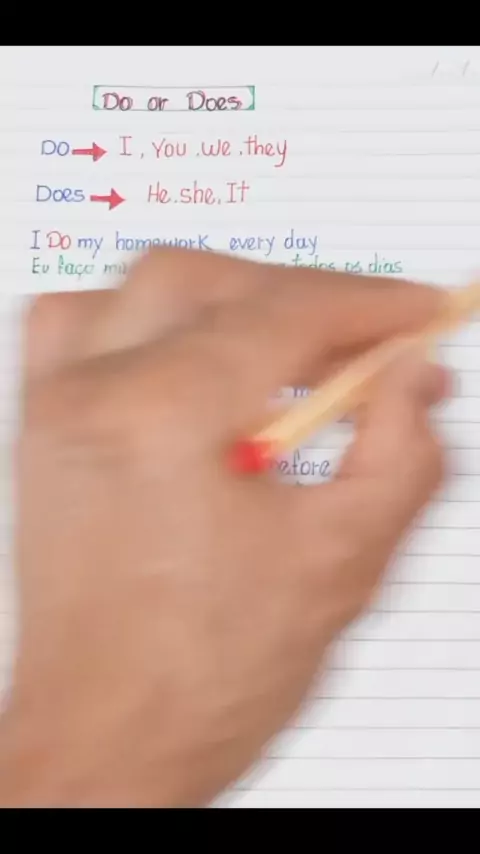 Do or Does
DO → I, You, we, they
Does → He, she, It
I Do my homework every day
Eu faço todos os dias
before